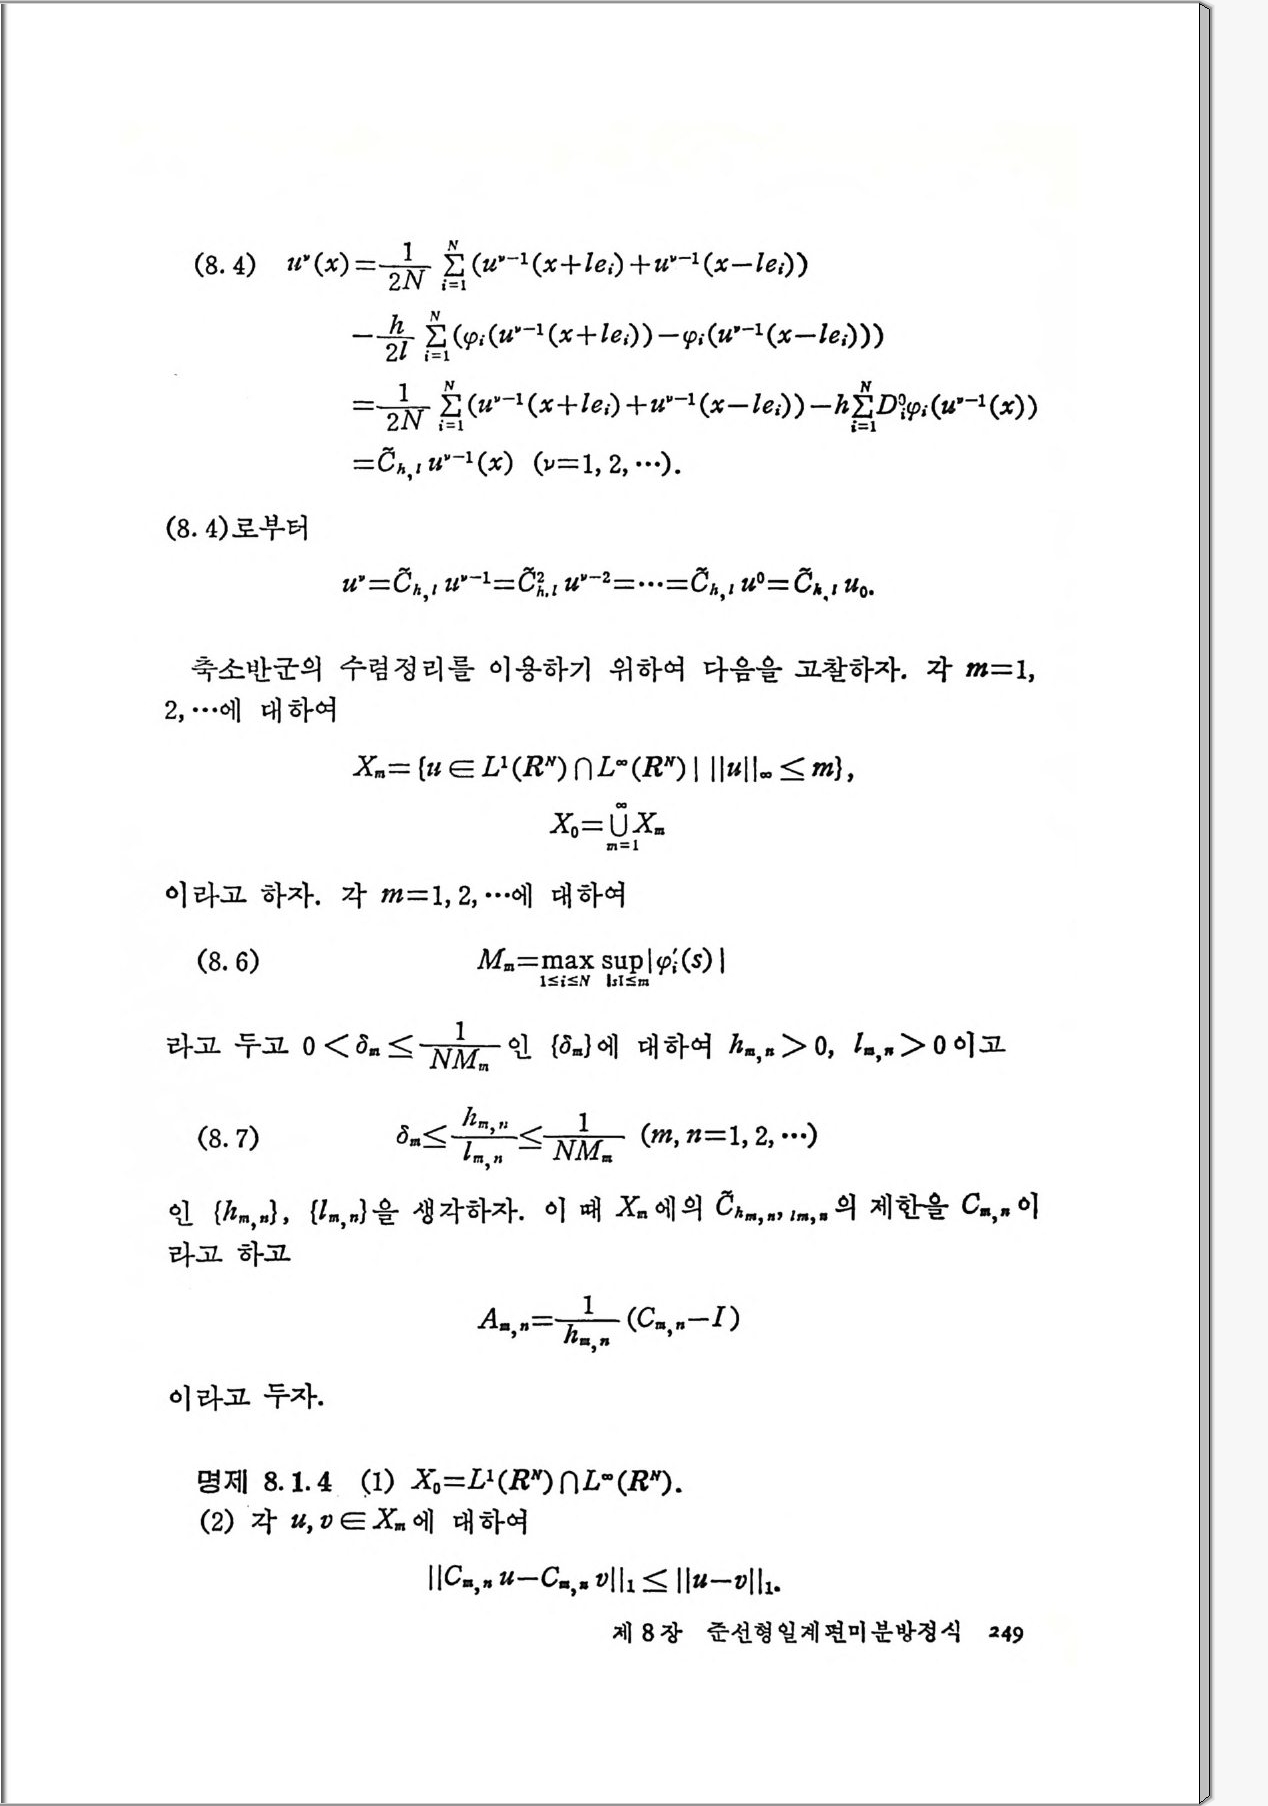 (8.4) u^ν(x)=1/2N Σ_{i=1}^{N}(u^{ν-1}(x+le_i)+u^{ν-1}(x-le_i))
-h/2l Σ_{i=1}^{N}(φ_i(u^{ν-1}(x+le_i))-φ_i(u^{ν-1}(x-le_i)))
=1/2N Σ_{i=1}^{N}(u^{ν-1}(x+le_i)+u^{ν-1}(x-le_i))-hΣ_{i=1}^{N}D_i^0φ_i(u^{ν-1}(x))
=C̃_{h,l} u^{ν-1}(x) (ν=1, 2, ⋯).
(8.4)로부터
u^ν=C̃_{h,l} u^{ν-1}=C̃²_{h,l} u^{ν-2}=⋯=C̃_{h,l} u^0=C̃_{h,l} u_0.
축소반군의 수렴정리를 이용하기 위하여 다음을 고찰하자. 각 m=1,
2, ⋯에 대하여
X_m={u∈L¹(R^N)∩L^∞(R^N)| ||u||_∞≤m},
X_0=∪_{m=1}^{∞}X_m
이라고 하자. 각 m=1, 2, ⋯에 대하여
(8.6) M_m=max_{1≤i≤N} sup_{|s|≤m}|φ_i′(s)|
라고 두고 0<δ_m≤1/NM_m 인 {δ_m}에 대하여 h_{m,n}>0, l_{m,n}>0이고
(8.7) δ_m≤h_{m,n}/l_{m,n}≤1/NM_m (m, n=1, 2, ⋯)
인 {h_{m,n}}, {l_{m,n}}을 생각하자. 이 때 X_n에의 C̃_{h_{m,n}, l_{m,n}}의 제한을 C_{m,n}이
라고 하고
A_{m,n}=1/h_{m,n}(C_{m,n}-I)
이라고 두자.
명제 8.1.4 (1) X_0=L¹(R^N)∩L^∞(R^N).
(2) 각 u, v∈X_m에 대하여
||C_{m,n} u-C_{m,n} v||_1≤||u-v||_1.
제 8 장 준선형일계편미분방정식 249